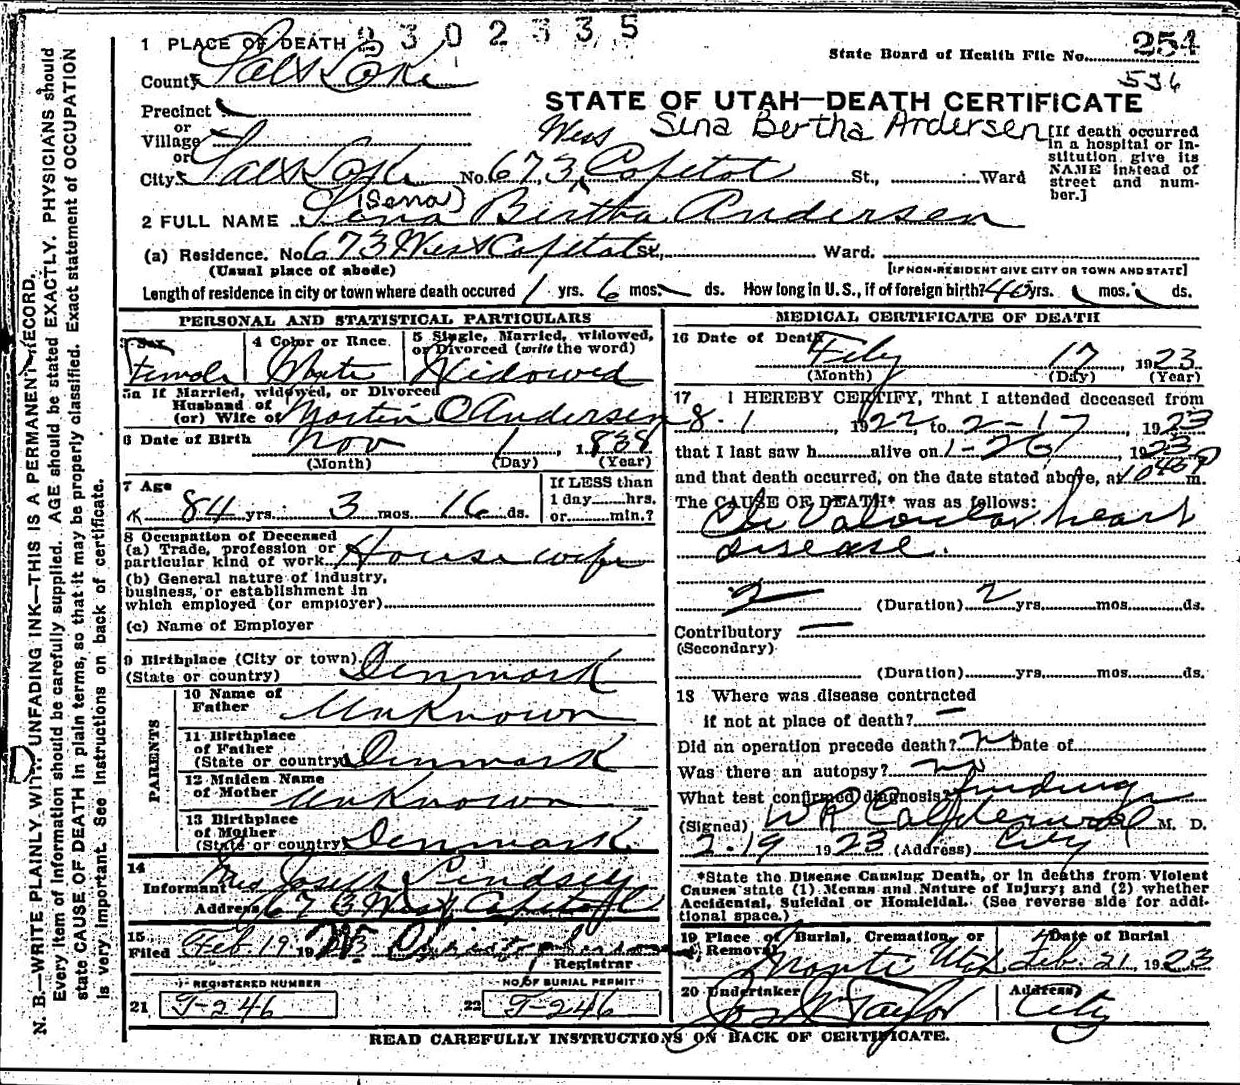 2302335
1 PLACE OF DEATH
State Board of Health File No. 254
County Salt Lake
536
Precinct
STATE OF UTAH—DEATH CERTIFICATE
or
Village
West Sena Bertha Andersen
[If death occurred in a hospital or institution give its NAME instead of street and number.]
or
City Salt Lake No. 673 Capitol St., Ward
(Sena)
2 FULL NAME Sena Bertha Andersen
(a) Residence. No. 673 West Capitol St., Ward.
(Usual place of abode) [IF NON-RESIDENT GIVE CITY OR TOWN AND STATE]
Length of residence in city or town where death occured 1 yrs. 6 mos. ds. How long in U.S., if of foreign birth? 40 yrs. mos. ds.
PERSONAL AND STATISTICAL PARTICULARS
3 Sex 4 Color or Race 5 Single, Married, widowed, or Divorced (write the word)
Female White Widowed
5a If Married, widowed, or Divorced
Husband of
(or) Wife of Mortin O Andersen
6 Date of Birth Nov 1, 1838
(Month) (Day) (Year)
7 Age If LESS than
1 day hrs.
84 yrs. 3 mos. 16 ds. or min.?
8 Occupation of Deceased
(a) Trade, profession or
particular kind of work Housewife
(b) General nature of industry,
business, or establishment in
which employed (or employer)
(c) Name of Employer
9 Birthplace (City or town)
(State or country) Denmark
PARENTS
10 Name of
Father Unknown
11 Birthplace
of Father
(State or country) Denmark
12 Maiden Name
of Mother Unknown
13 Birthplace
of Mother
(State or country) Denmark
14
Informant Mrs Joseph Lindsey
Address 673 West Capitol
15
Filed Feb. 19 1923
Registrar
REGISTERED NUMBER NO. OF BURIAL PERMIT
21 G-246 22 G-246
MEDICAL CERTIFICATE OF DEATH
16 Date of Death Feby 17, 1923
(Month) (Day) (Year)
17 I HEREBY CERTIFY, That I attended deceased from
8-1, 1922, to 2-17, 1923
that I last saw h alive on 1-26, 1923
and that death occurred, on the date stated above, at 10 45 P m.
The CAUSE OF DEATH* was as follows:
Chr Valvular heart
disease.
2 (Duration) 2 yrs. mos. ds.
Contributory —
(Secondary)
(Duration) yrs. mos. ds.
18 Where was disease contracted
if not at place of death? —
Did an operation precede death? no Date of
Was there an autopsy? no
What test confirmed diagnosis? findings
(Signed) W R Calderwood M. D.
2-19 1923 (Address) City
*State the Disease Causing Death, or in deaths from Violent
Causes state (1) Means and Nature of Injury; and (2) whether
Accidental, Suicidal or Homicidal. (See reverse side for additional space.)
19 Place of Burial, Cremation, or Date of Burial
Removal
Manti Utah Feb. 21, 1923
20 Undertaker Address
Jos Wm Taylor City
READ CAREFULLY INSTRUCTIONS ON BACK OF CERTIFICATE.
N. B.—WRITE PLAINLY WITH UNFADING INK—THIS IS A PERMANENT RECORD.
Every item of information should be carefully supplied. AGE should be stated EXACTLY. PHYSICIANS should
state CAUSE OF DEATH in plain terms, so that it may be properly classified. Exact statement of OCCUPATION
is very important. See instructions on back of certificate.